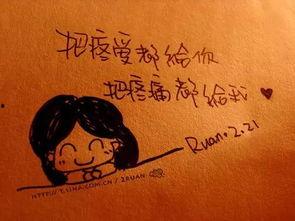 把疼爱都给你
把疼痛都给我
Ruano 2.21
HTTP://T.SINA.COM.CN/ZRUAN